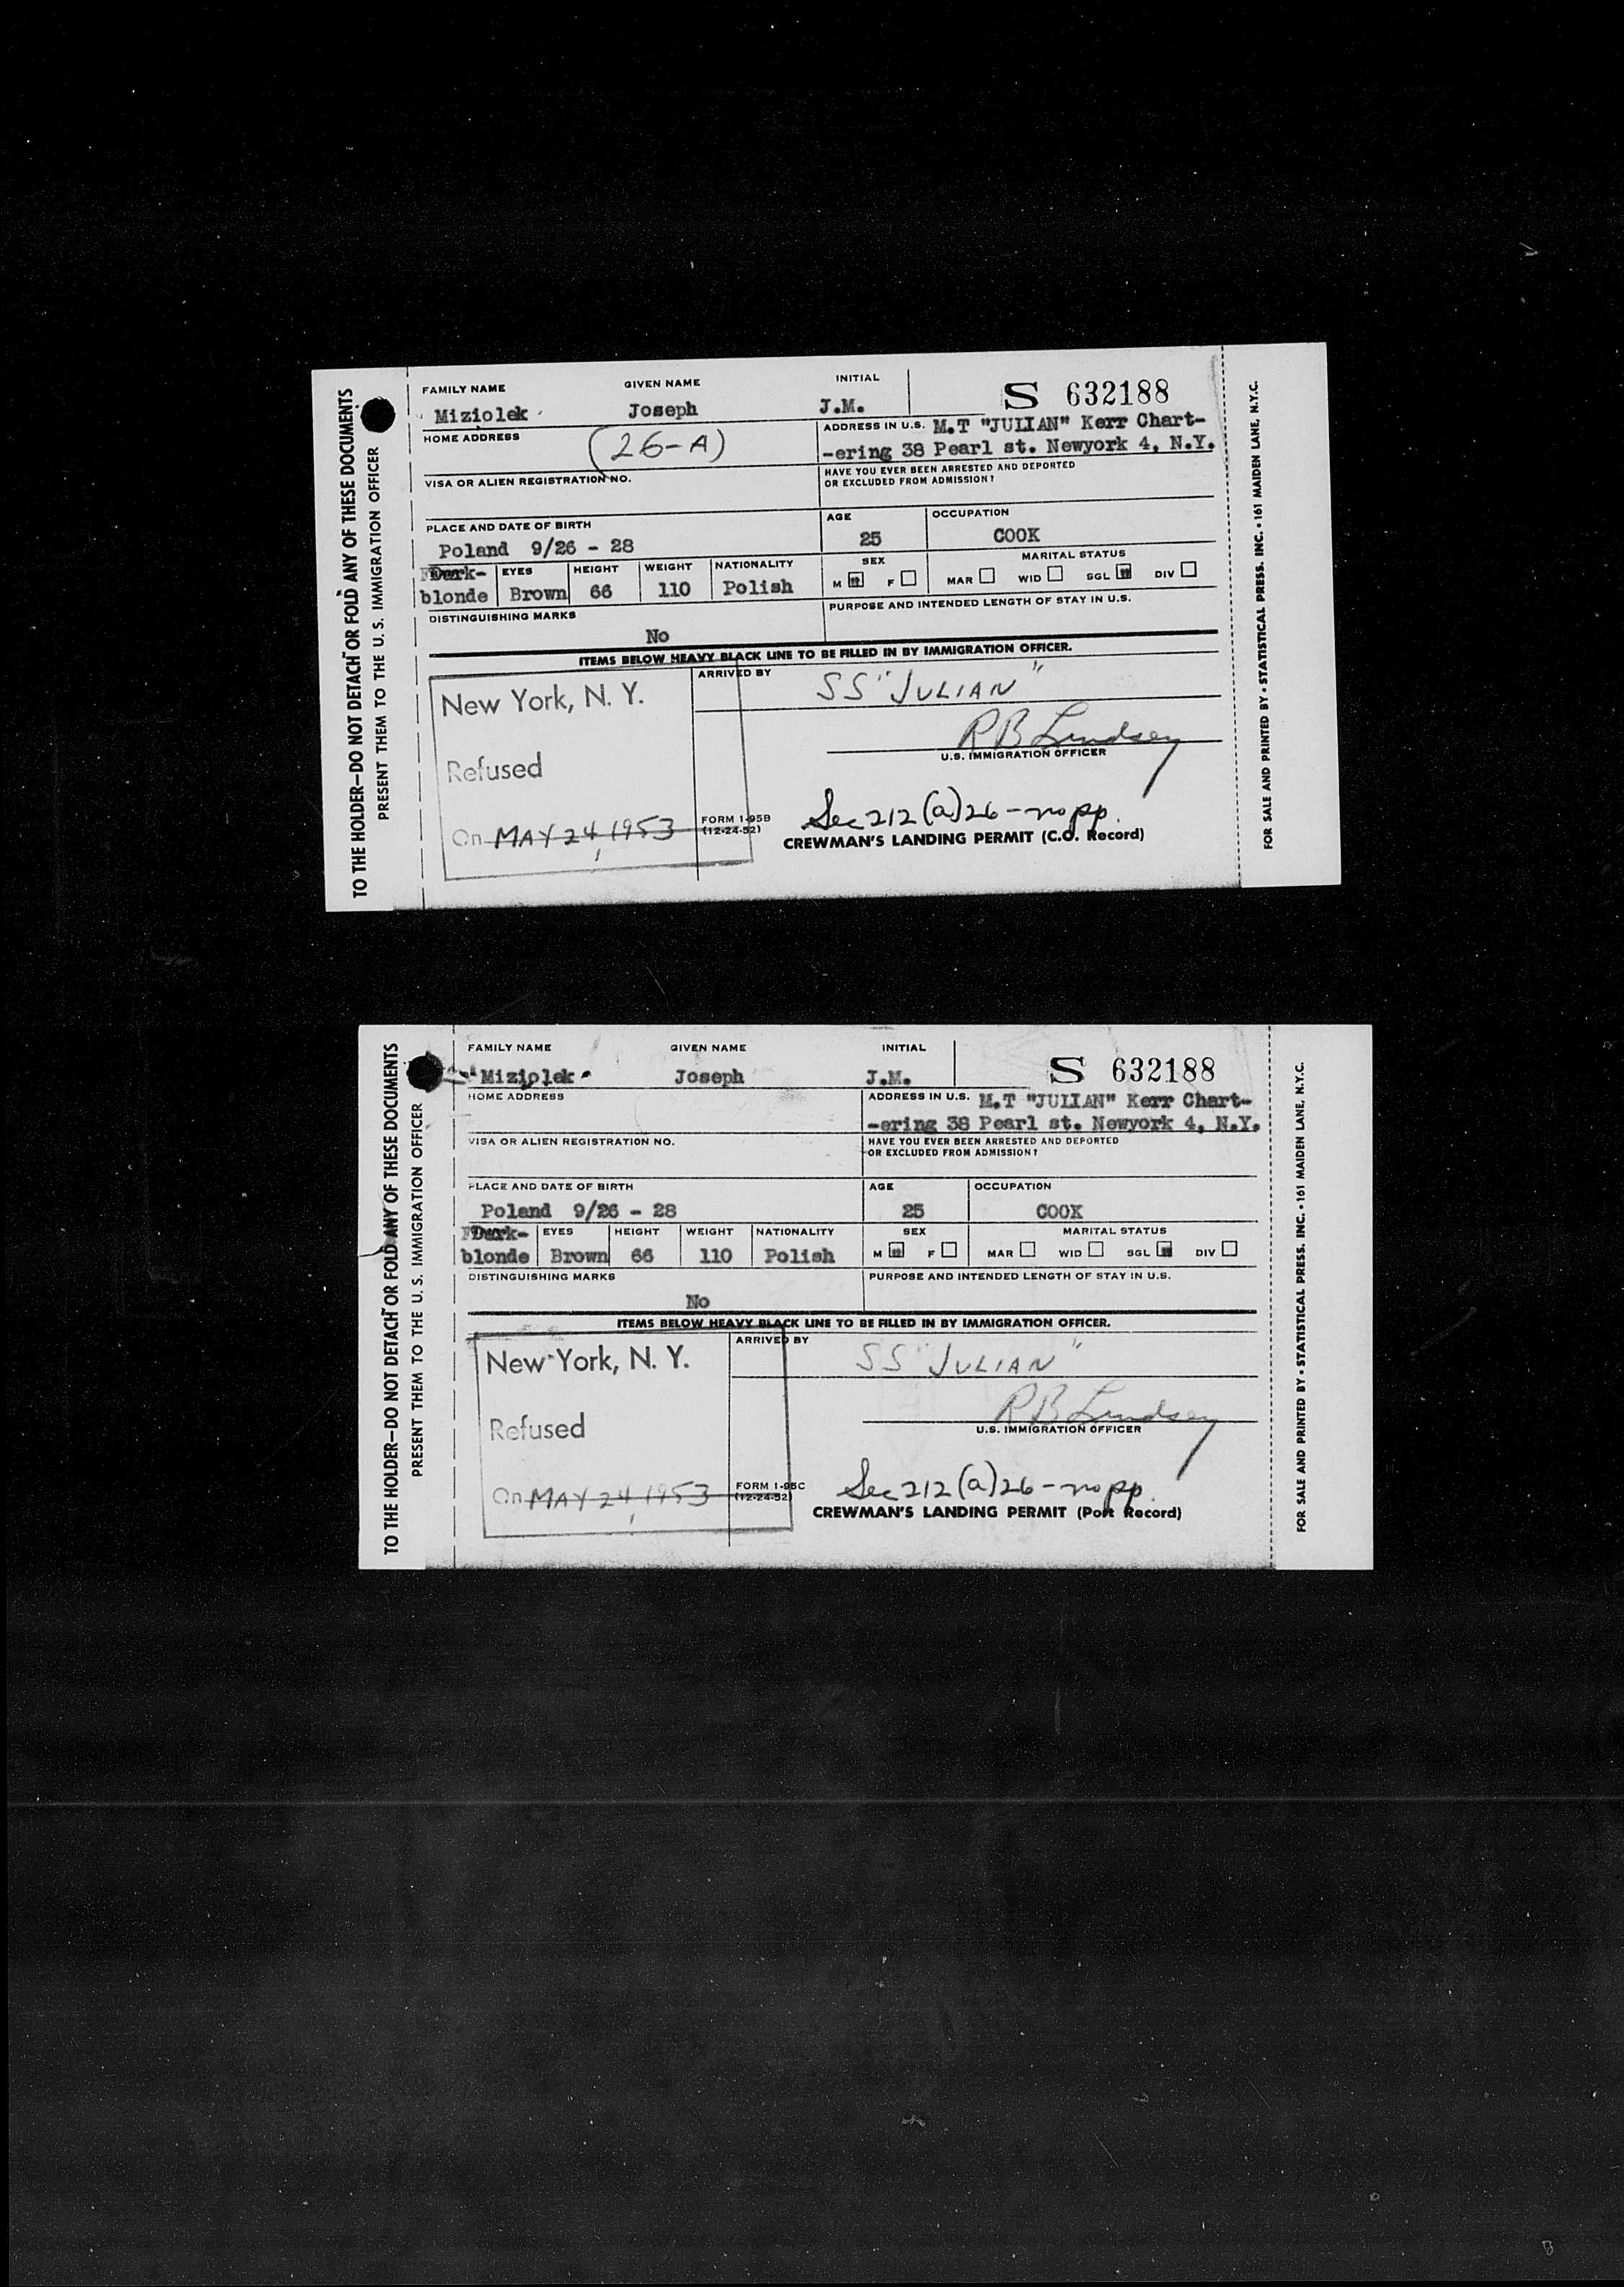 TO THE HOLDER—DO NOT DETACH OR FOLD ANY OF THESE DOCUMENTS
PRESENT THEM TO THE U. S. IMMIGRATION OFFICER
FAMILY NAME GIVEN NAME INITIAL
Miziolek Joseph J.M. S 632188
HOME ADDRESS (26-A) ADDRESS IN U.S. M.T "JULIAN" Kerr Chart-
-ering 38 Pearl st. Newyork 4, N.Y.
VISA OR ALIEN REGISTRATION NO. HAVE YOU EVER BEEN ARRESTED AND DEPORTED
OR EXCLUDED FROM ADMISSION?
PLACE AND DATE OF BIRTH AGE OCCUPATION
Poland 9/26 - 28 25 COOK
Dark- EYES HEIGHT WEIGHT NATIONALITY SEX MARITAL STATUS
blonde Brown 66 110 Polish M F MAR WID SGL DIV
DISTINGUISHING MARKS PURPOSE AND INTENDED LENGTH OF STAY IN U.S.
No
ITEMS BELOW HEAVY BLACK LINE TO BE FILLED IN BY IMMIGRATION OFFICER.
New York, N. Y. ARRIVED BY SS "JULIAN"
RB Lindsey
U.S. IMMIGRATION OFFICER
Refused
On MAY 24, 1953 FORM I-95B Sec 212 (a) 26 - no pp.
(12-24-52) CREWMAN'S LANDING PERMIT (C.O. Record)
FOR SALE AND PRINTED BY • STATISTICAL PRESS. INC. • 161 MAIDEN LANE, N.Y.C.
TO THE HOLDER—DO NOT DETACH OR FOLD ANY OF THESE DOCUMENTS
PRESENT THEM TO THE U. S. IMMIGRATION OFFICER
FAMILY NAME GIVEN NAME INITIAL
Miziolek Joseph J.M. S 632188
HOME ADDRESS ADDRESS IN U.S. M.T "JULIAN" Kerr Chart-
-ering 38 Pearl st. Newyork 4, N.Y.
VISA OR ALIEN REGISTRATION NO. HAVE YOU EVER BEEN ARRESTED AND DEPORTED
OR EXCLUDED FROM ADMISSION?
PLACE AND DATE OF BIRTH AGE OCCUPATION
Poland 9/26 - 28 25 COOK
Dark- EYES HEIGHT WEIGHT NATIONALITY SEX MARITAL STATUS
blonde Brown 66 110 Polish M F MAR WID SGL DIV
DISTINGUISHING MARKS PURPOSE AND INTENDED LENGTH OF STAY IN U.S.
No
ITEMS BELOW HEAVY BLACK LINE TO BE FILLED IN BY IMMIGRATION OFFICER.
New York, N. Y. ARRIVED BY SS "JULIAN"
RB Lindsey
U.S. IMMIGRATION OFFICER
Refused
On MAY 24, 1953 FORM I-95C Sec 212 (a) 26 - no pp.
(12-24-52) CREWMAN'S LANDING PERMIT (Port Record)
FOR SALE AND PRINTED BY • STATISTICAL PRESS. INC. • 161 MAIDEN LANE, N.Y.C.